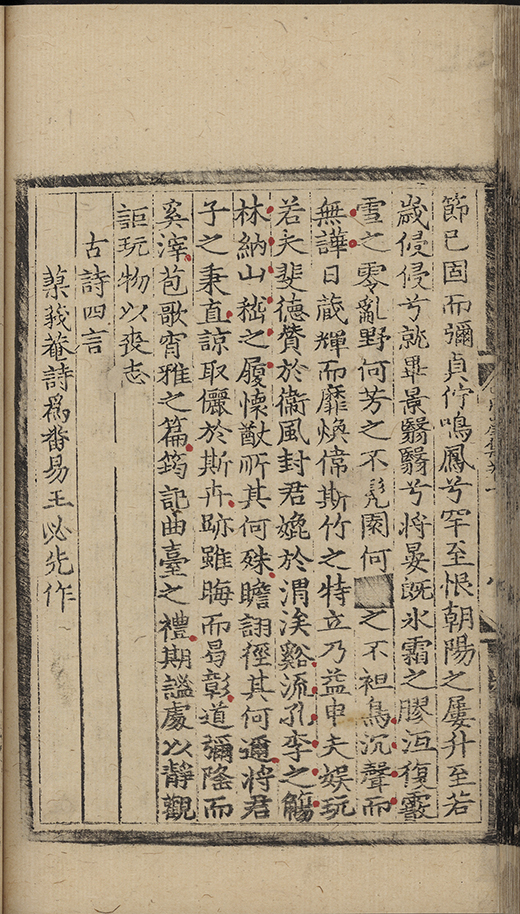 節已固而彌貞佇鳴鳳兮罕至恨朝陽之屢升至若
歲侵侵兮就畢景翳翳兮將晏旣氷霜之膠沍復霰
雪之零亂野何芳之不髠園何之不袒鳥沉聲而
無譁日蔵輝而靡煥偉斯竹之特立乃益申夫娯玩
若夫斐德贊於衞風封君媲於渭涘谿流孔李之觴
林納山嵇之履懷猷所其何殊瞻詡徑其何邇將君
子之秉直諒取儷於斯卉跡雖晦而曷彰道彌隆而
奚滓苞歌宵雅之篇筠記曲臺之禮期謐處以靜觀
詎玩物以喪志
古詩四言
菉義菴詩爲番易王必先作